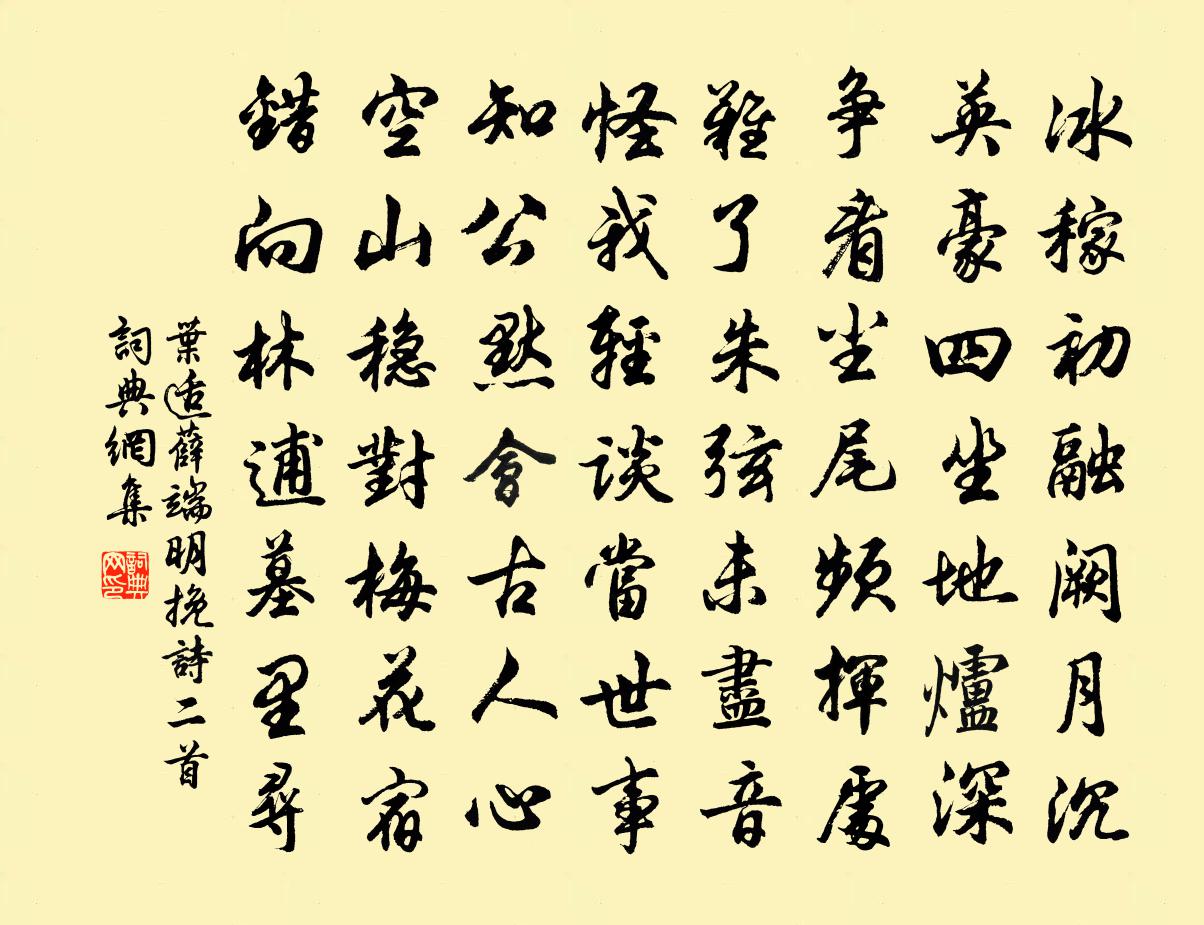 冰稼初融阙月沉
英豪四坐地爐深
争看尘尾頻揮處
難了朱弦未盡音
怪我輕談當世事
知公默會古人心
空山稳對梅花宿
錯向林逋墓里尋
葉适薛端明挽詩二首
詞典網集
詞典网印